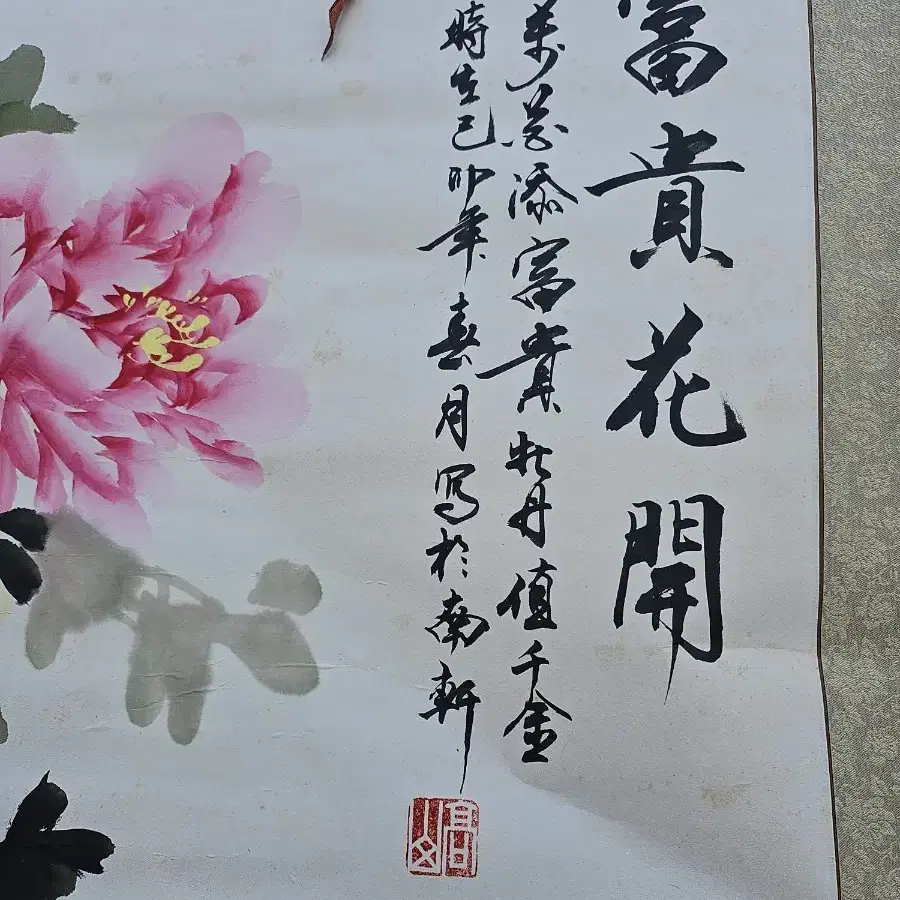 富貴花開
萬蕊添富貴牡丹值千金
時在己卯年春月写於南軒